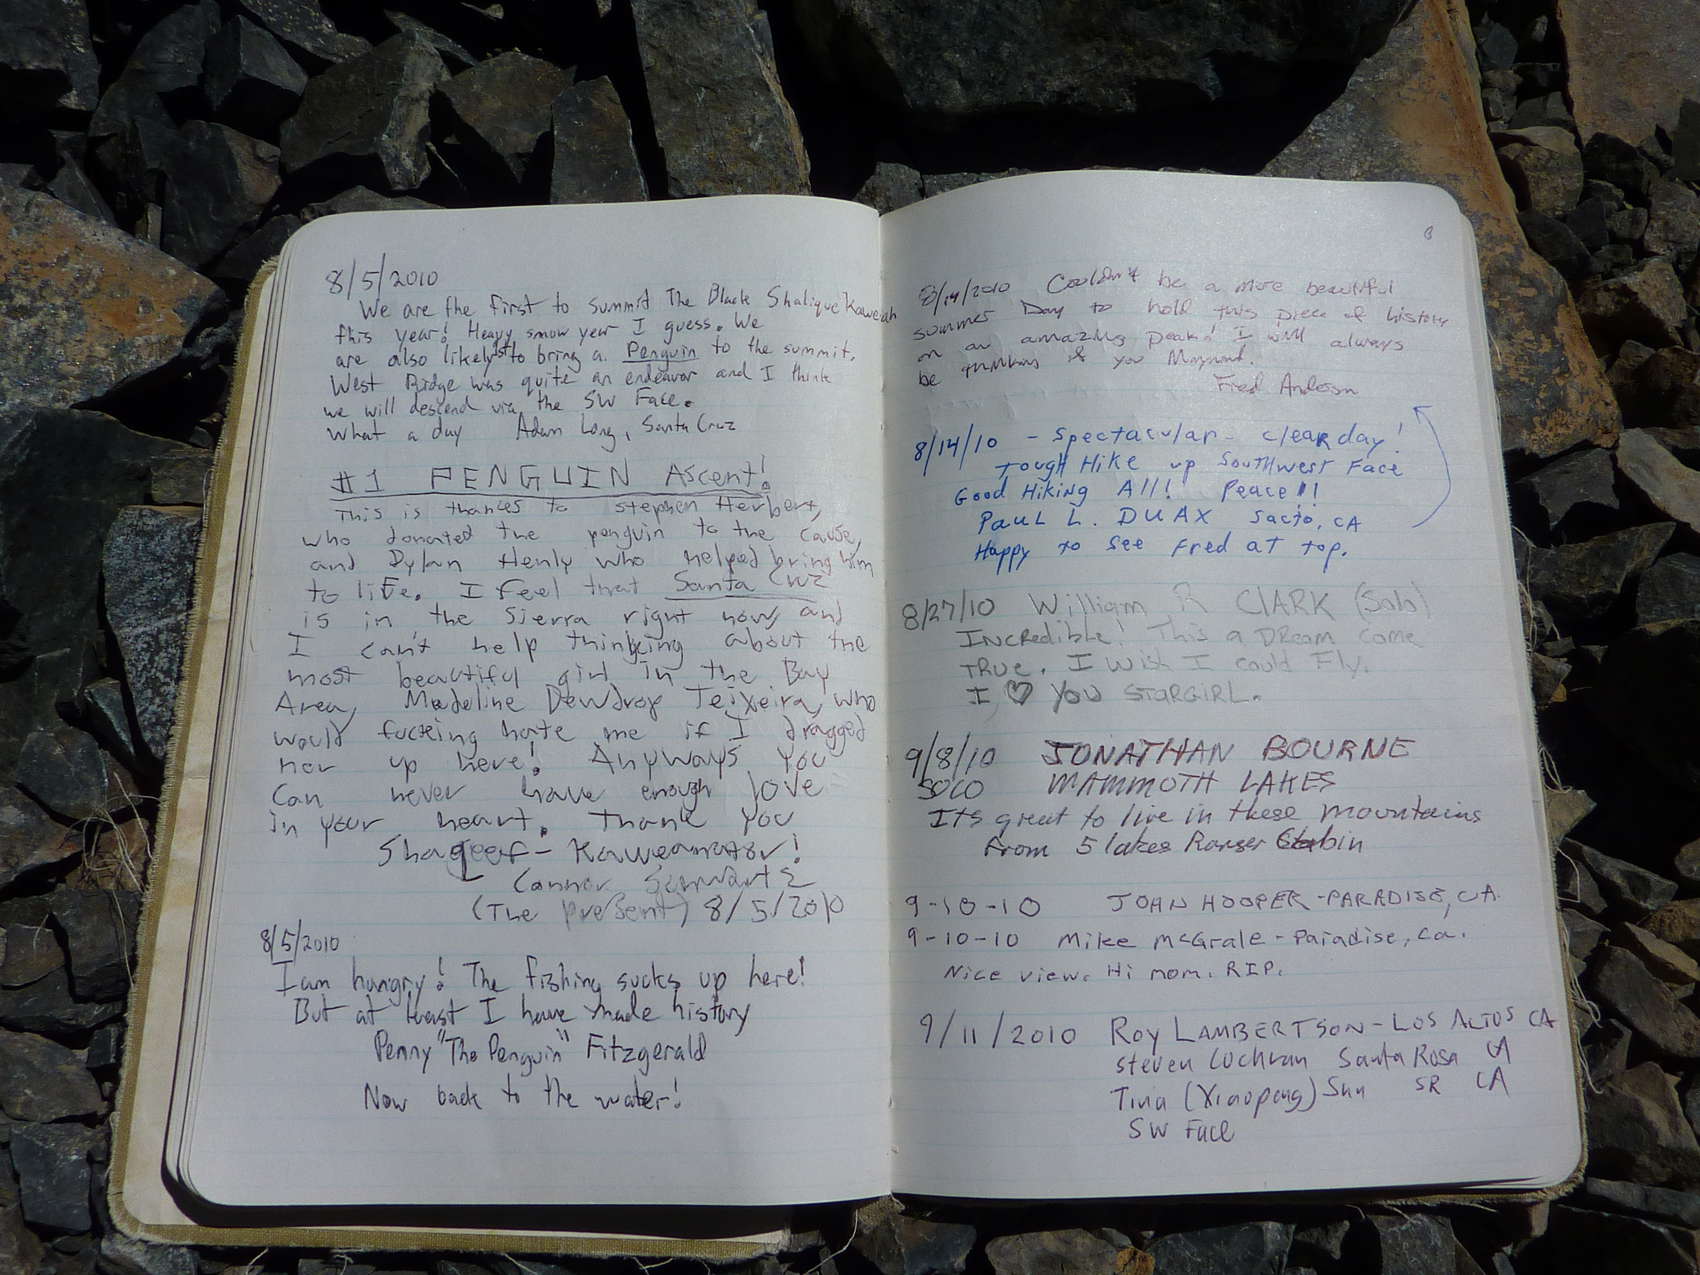 8/5/2010
We are the first to summit The Black Shalique Kaweah
this year! Heavy snow year I guess. We
are also likely 1st to bring a Penguin to the summit.
West Ridge was quite an endeavor and I think
we will descend via the SW Face.
What a day Adam Long, Santa Cruz
#1 PENGUIN Ascent!
This is thances to stephen Herbert,
who donated the penguin to the cause,
and Dylan Henly who helped bring him
to life. I feel that Santa Cruz
is in the Sierra right now, and
I can't help thinking about the
most beautiful girl in the Bay
Area, Madeline Dewdrop Teixeira, who
would fucking hate me if I dragged
her up here! Anyways you
can never have enough love
in your heart. Thank You
Shaqeef - Kaweanator!
Connor
(The present) 8/5/2010
8/5/2010
I am hungry! The fishing sucks up here!
But at least I have made history
Penny "The Penguin" Fitzgerald
Now back to the water!
8/14/2010 Couldn't be a more beautiful
summer Day to hold this piece of history
on an amazing peak! I will always
be thinking of you Maynard.
Fred Anderson
8/14/10 - Spectacular - clear day!
Tough Hike up Southwest Face
Good Hiking All! Peace!!
PAUL L. DUAX Sacto, CA
Happy to see Fred at top.
8/27/10 William R ClARK (Solo)
INCREdible! This a DReam come
TRUe. I Wish I could Fly.
I ♡ YOU STARGIRL.
9/8/10 JONATHAN BOURNE
SOLO MAMMOTH LAKES
Its great to live in these mountains
From 5 lakes Ranger Cabin
9-10-10 JOHN HOOPER - PARADISE, CA.
9-10-10 Mike McGrale - Paradise, Ca.
Nice view. Hi mom. RIP.
9/11/2010 ROY LAMBERTSON - LOS ALTOS CA
Steven Cochran Santa Rosa CA
Tina (Xiaopeng) Sun SR CA
SW Face